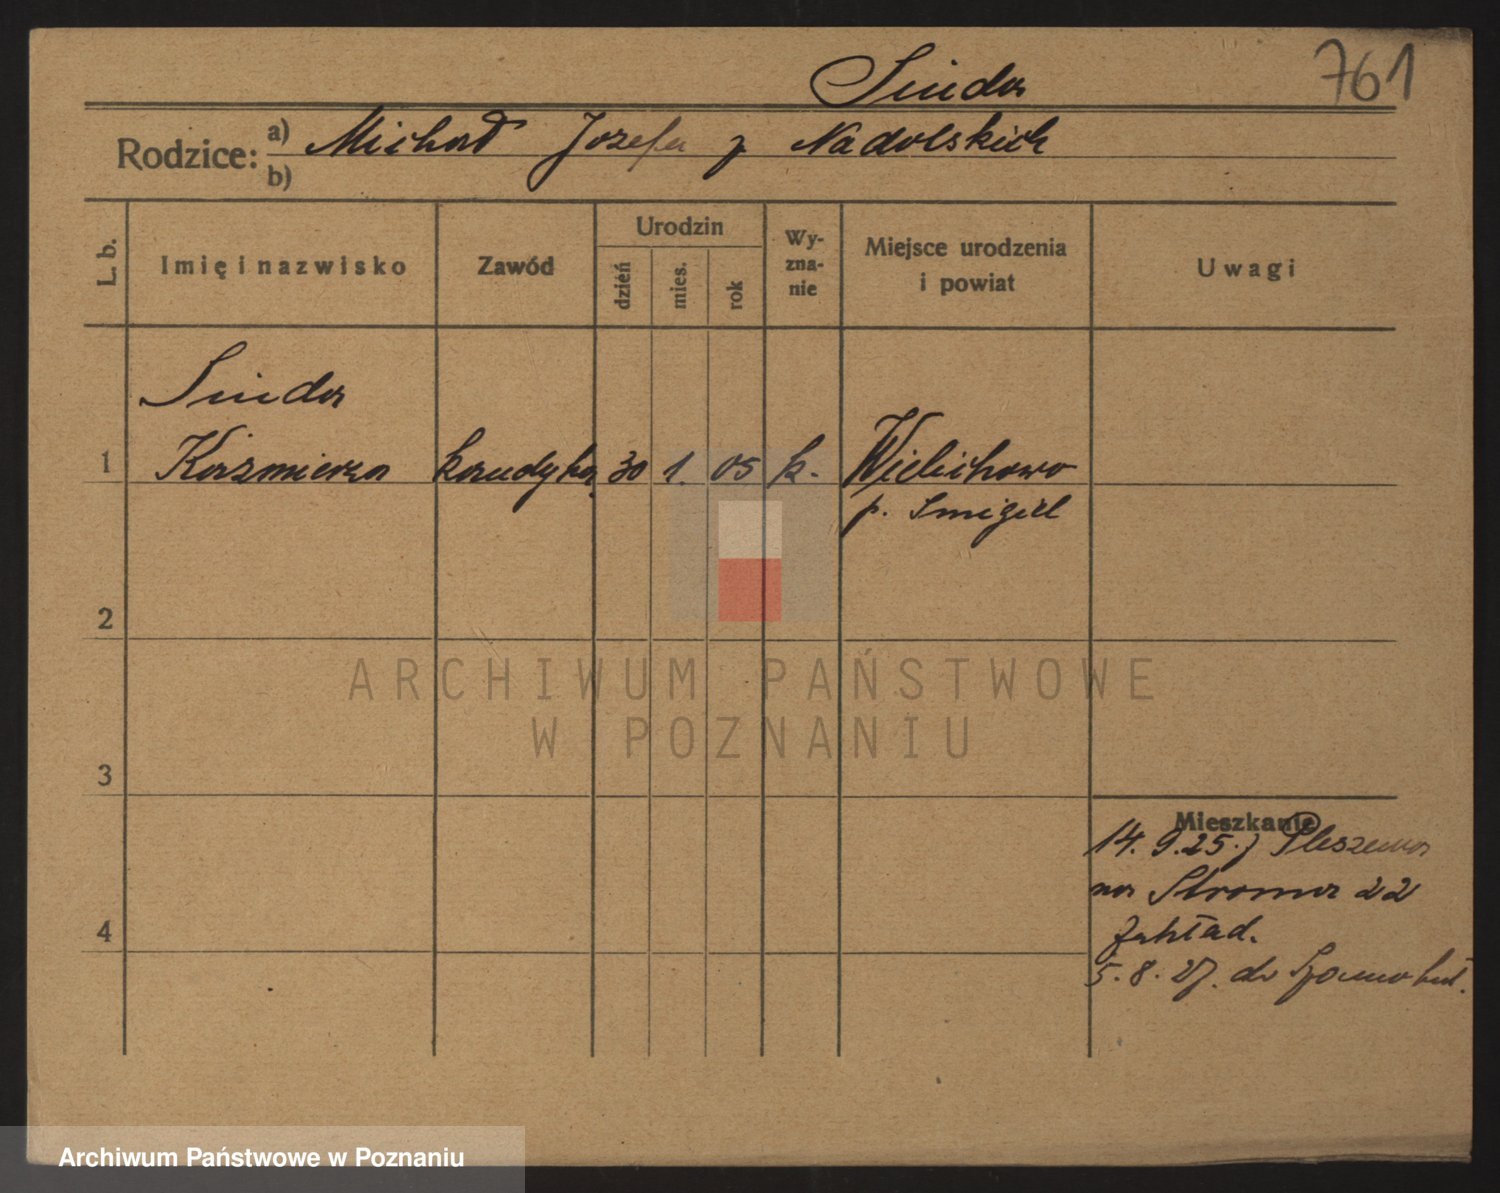 761
Sinda
Rodzice: a) Michał Józefa z Nadolskich
b)
L. b. Imię i nazwisko Zawód Urodzin dzień mies. rok Wy-zna-nie Miejsce urodzenia i powiat Uwagi
Sinda
1 Kazmiera 30 1. 05 k. Wielichowo
p. Smigiel
2
3
Mieszkanie
14. 9. 25. z Pleszewa
na Stroma 22
4 zakład.
5. 8. 27. do
ARCHIWUM PAŃSTWOWE
W POZNANIU
Archiwum Państwowe w Poznaniu